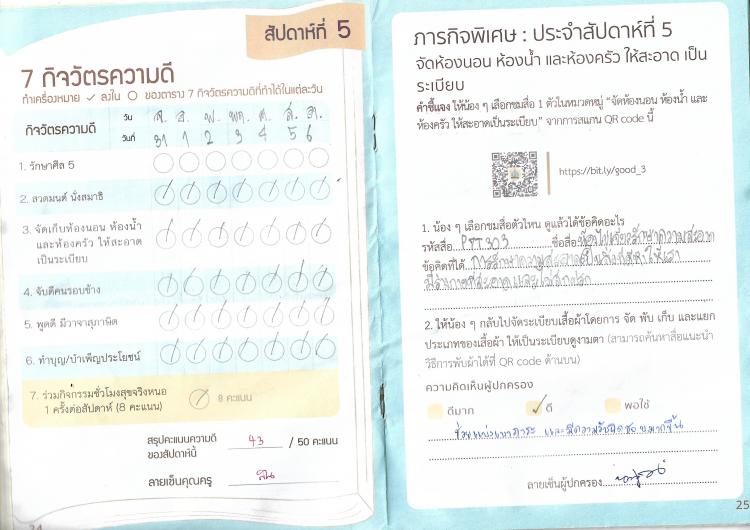 สัปดาห์ที่ 5
7 กิจวัตรความดี
ทำเครื่องหมาย ✓ ลงใน ○ ของตาราง 7 กิจวัตรความดีที่ทำได้ในแต่ละวัน
กิจวัตรความดี
วัน จ. อ. พ. พฤ. ศ. ส. อา.
วันที่ 31 1 2 3 4 5 6
1. รักษาศีล 5
2. สวดมนต์ นั่งสมาธิ
3. จัดเก็บห้องนอน ห้องน้ำ
และห้องครัว ให้สะอาด
เป็นระเบียบ
4. จับดีคนรอบข้าง
5. พูดดี มีวาจาสุภาษิต
6. ทำบุญ/บำเพ็ญประโยชน์
7. ร่วมกิจกรรมชั่วโมงสุขจริงหนอ
1 ครั้งต่อสัปดาห์ (8 คะแนน)
8 คะแนน
สรุปคะแนนความดี
ของสัปดาห์นี้
43 / 50 คะแนน
ลายเซ็นคุณครู
24
ภารกิจพิเศษ : ประจำสัปดาห์ที่ 5
จัดห้องนอน ห้องน้ำ และห้องครัว ให้สะอาด เป็น
ระเบียบ
คำชี้แจง ให้น้อง ๆ เลือกชมสื่อ 1 ตัวในหมวดหมู่ “จัดห้องนอน ห้องน้ำ และ
ห้องครัว ให้สะอาดเป็นระเบียบ” จากการสแกน QR code นี้
https://bit.ly/good_3
1. น้อง ๆ เลือกชมสื่อตัวไหน ดูแล้วได้ข้อคิดอะไร
รหัสสื่อ PTT303 ชื่อสื่อ
ข้อคิดที่ได้ การรักษาความสะอาด
มีร่างกายที่สะอาดและไม่สกปรก
2. ให้น้อง ๆ กลับไปจัดระเบียบเสื้อผ้าโดยการ จัด พับ เก็บ และแยก
ประเภทของเสื้อผ้า ให้เป็นระเบียบดูงามตา (สามารถค้นหาสื่อแนะนำ
วิธีการพับผ้าได้ที่ QR code ด้านบน)
ความคิดเห็นผู้ปกครอง
ดีมาก ✓ ดี พอใช้
ช่วยแบ่งเบาภาระ และมีความรับผิดชอบมากขึ้น
ลายเซ็นผู้ปกครอง
25